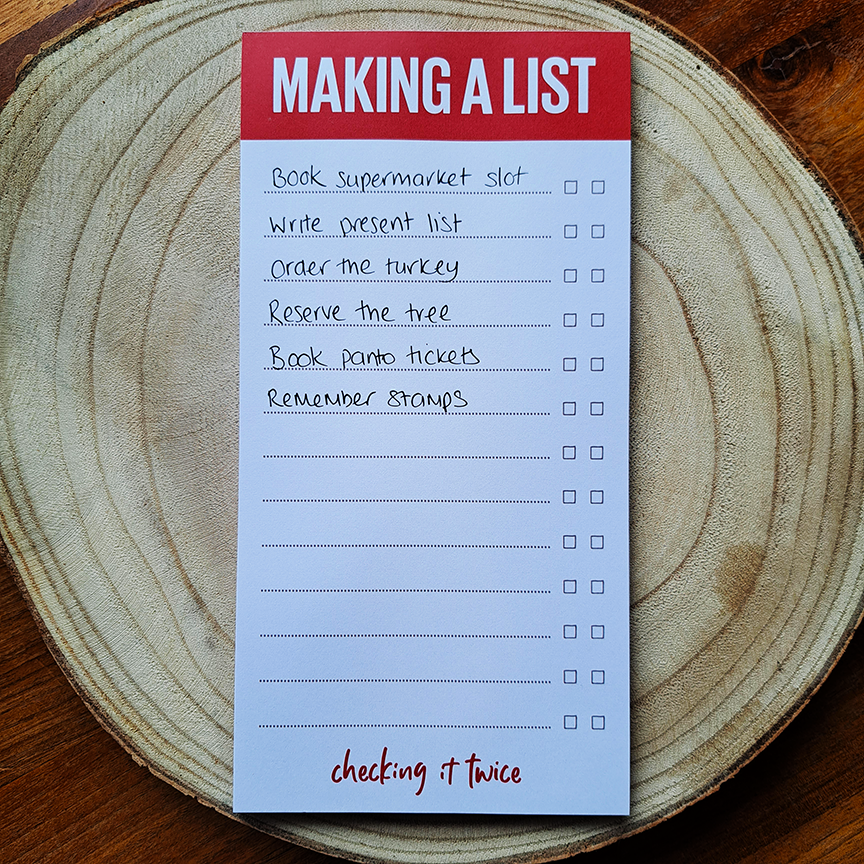 MAKING A LIST
Book supermarket slot
Write present list
Order the turkey
Reserve the tree
Book panto tickets
Remember stamps
checking it twice